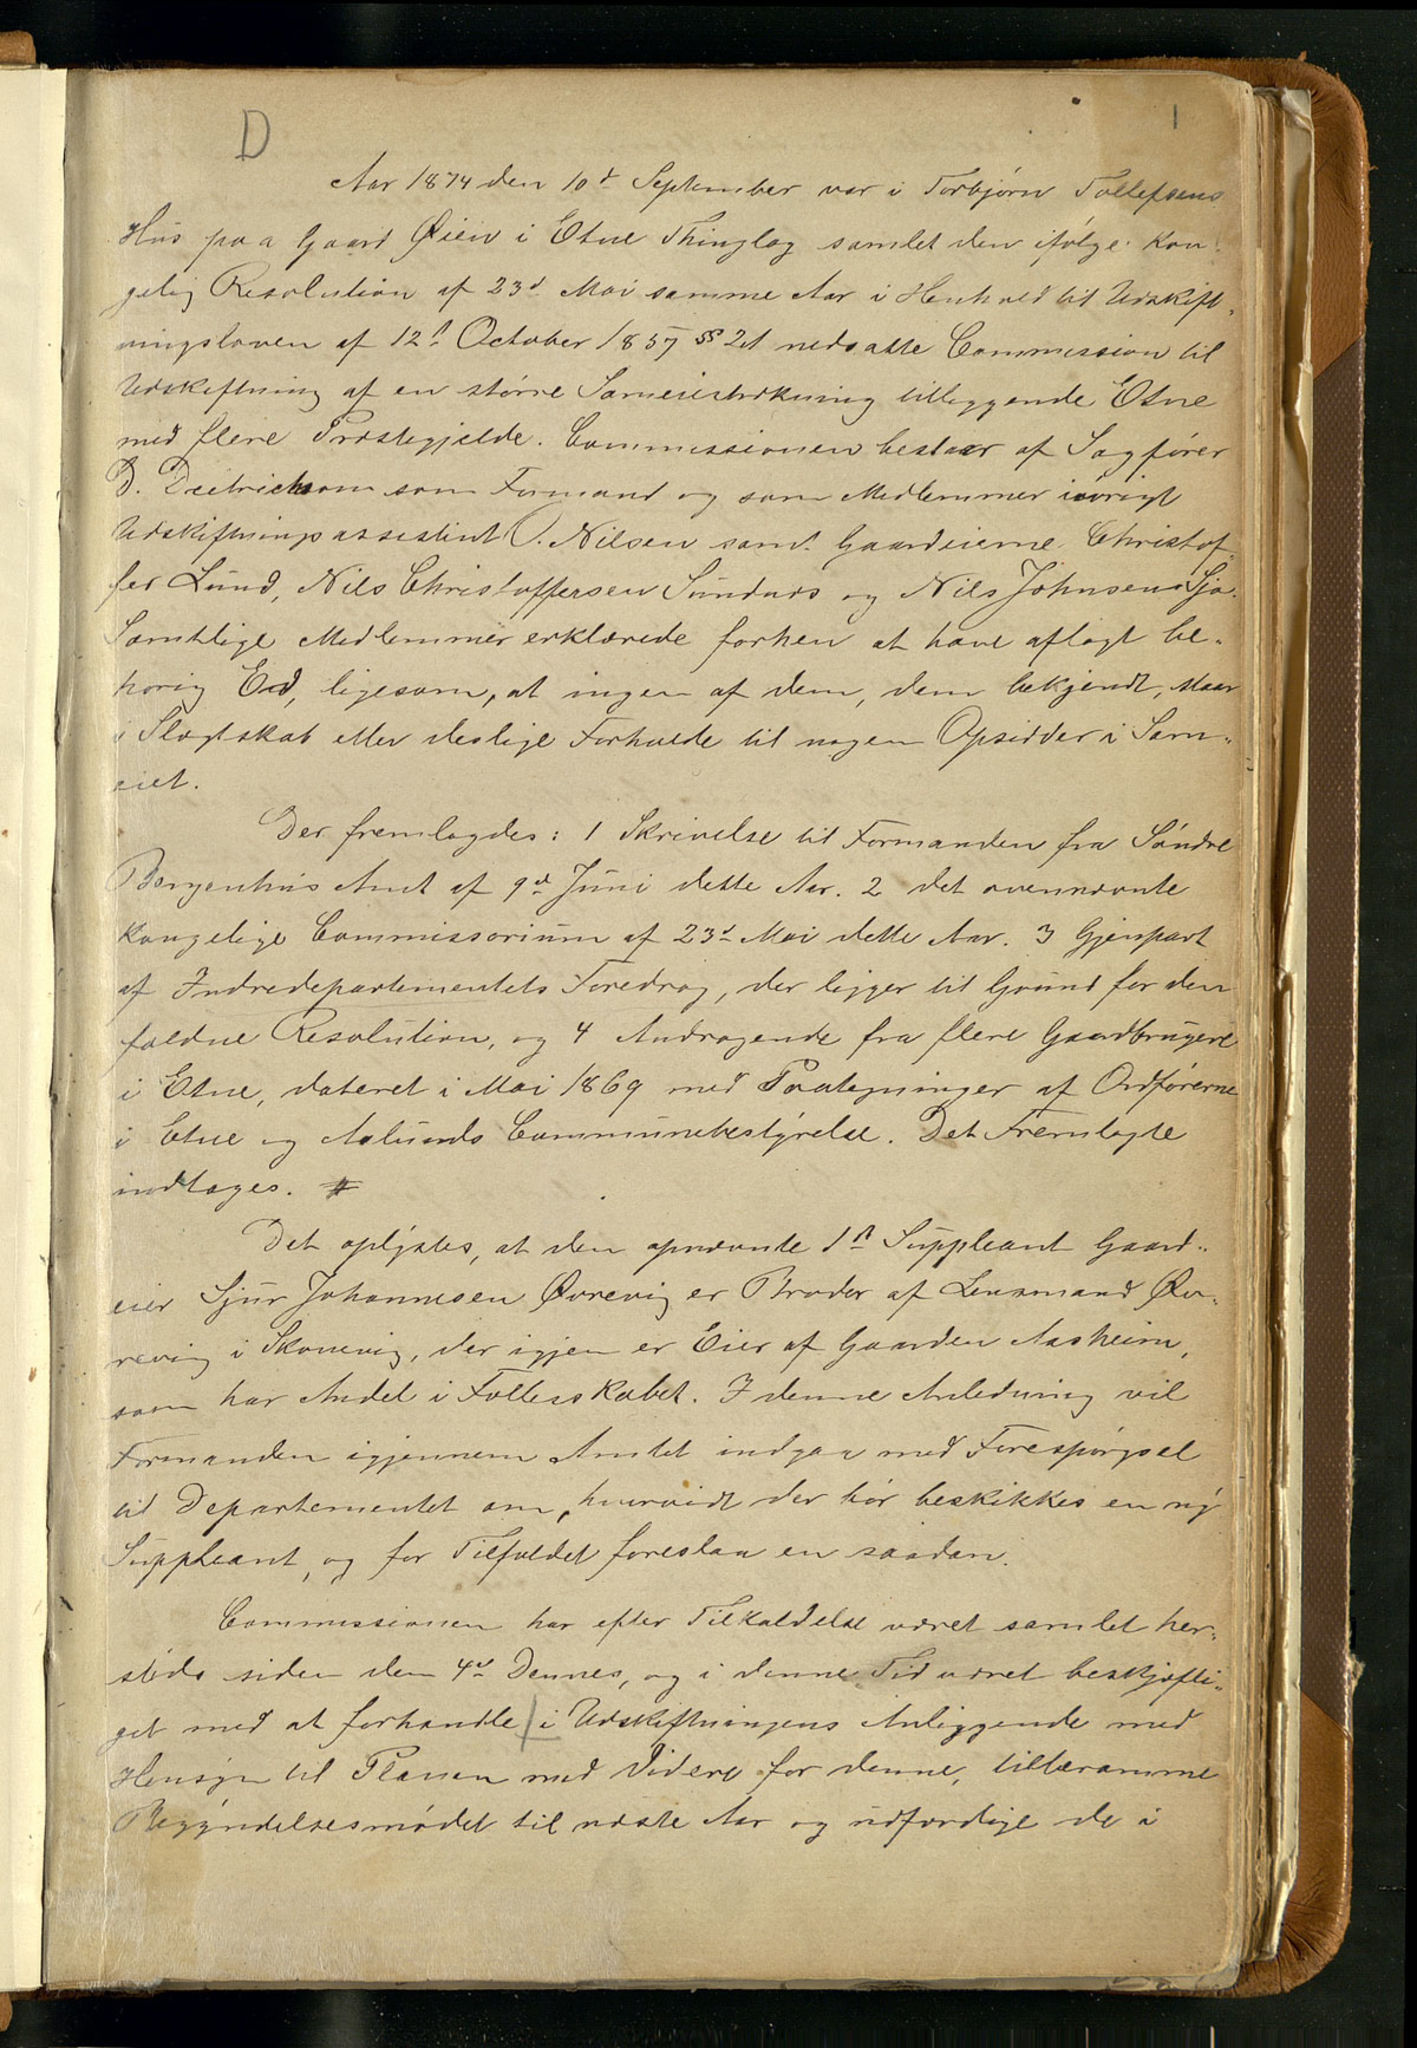 D
1
Aar 1874 den 10d September var i Torbjørn Tollefsens
Hus paa Gaard Øien i Etne Thinglag samlet den ifølge Kon-
gelig Resolution af 23d Mai samme Aar i Henhold til Udskift-
ningsloven af 12te October 1857 §§ 21 nedsatte Commission til
Udskiftning af en større Sameiestrækning tilliggende Etne
med flere Præstegjelde. Commissionen bestaar af Sagfører
D. Dietrichson som Formand og som Medlemmer iøvrigt
Udskiftningsassistent O. Nilsen samt Gaardeierne Christof-
fer Lund, Nils Christoffersen Sundnæs og Nils Johnsen Sjo.
Samtlige Medlemmer erklærede forhen at have aflagt be-
hørig Ed, ligesom, at ingen af dem, dem bekjendt, staar
i Slægtskab eller deslige Forholde til nogen Opsidder i Sam-
eiet.
Der fremlagdes: 1 Skrivelse til Formanden fra Søndre
Bergenhus Amt af 9d Juni dette Aar. 2 det ovennævnte
Kongelige Commissorium af 23d Mai dette Aar. 3 Gjenpart
af Indredepartementets Foredrag, der ligger til Grund for den
faldne Resolution, og 4 Andragende fra flere Gaardbrugere
i Etne, dateret i Mai 1869 med Paategninger af Ordførerne
i Etne og Aalunds Communebestyrelse. Det Fremlagte
indtages. #
Det oplystes, at den opnævnte 1ste Suppleant Gaard-
eier Sjur Johannesen Øvrevig er Broder af Lensmand Øv-
revig i Skonevig, der igjen er Eier af Gaarden Aasheim,
som har Andel i Fællesskabet. I denne Anledning vil
Formanden igjennem Amtet indgaa med Forespørgsel
til Departementet om, hvorvidt der bør beskikkes en ny
Suppleant, og for Tilfældet foreslaa en saadan.
Commissionen har efter Tilkaldelse været samlet her-
steds siden den 4d Dennes, og i denne Tid været beskjæfti-
get med at forhandle i Udskiftningens Anliggende med
Hensyn til Planen med Videre for denne, tilberamme
Begyndelsesmødet til næste Aar og udfærdige de i